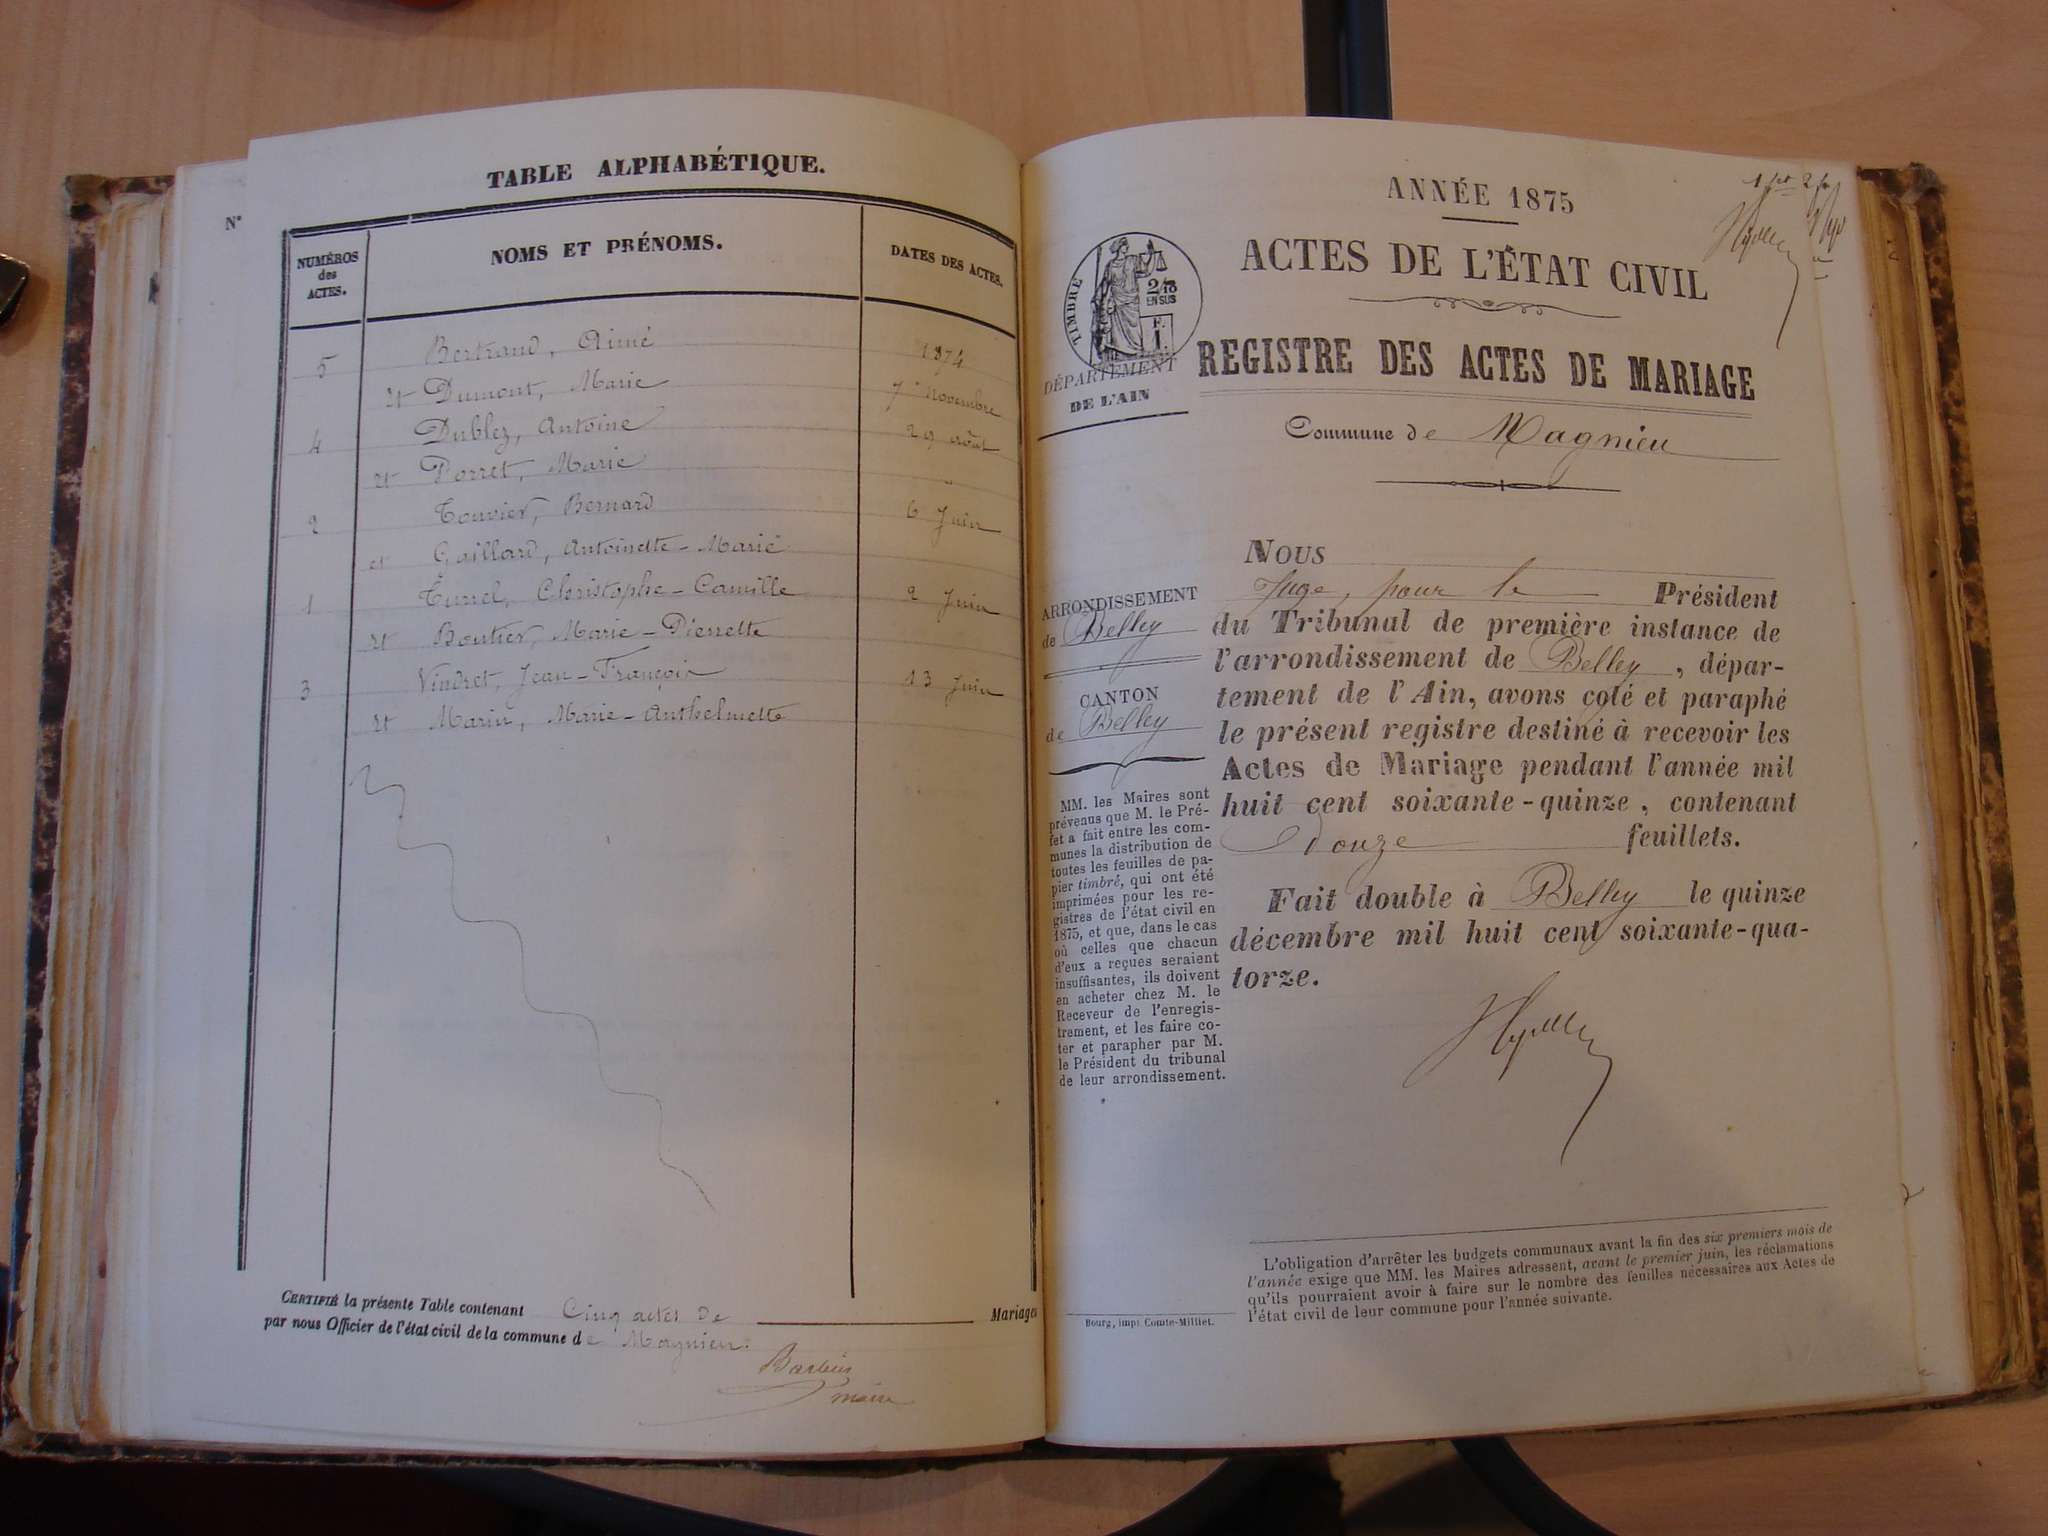 TABLE ALPHABÉTIQUE.
N°
NUMÉROS
des
ACTES.
NOMS ET PRÉNOMS.
DATES DES ACTES.
5 Bertrand, Aimé 1874
et Dumont, Marie 7 novembre
4 Dublez, Antoine 29 août
et Porret, Marie
2 Touvier, Bernard 6 Juin
et Gaillard, Antoinette-Marie
1 Turrel, Christophe-Camille 2 Juin
et Boutier, Marie-Pierrette
3 Vindret, Jean-François 13 Juin
et Marin, Marie-Anthelmette
CERTIFIÉ la présente Table contenant Cinq actes de Mariages
par nous Officier de l'état civil de la commune de Magnieu.
maire
ANNÉE 1875
ACTES DE L'ÉTAT CIVIL
TIMBRE
2/10
EN SUS
REGISTRE DES ACTES DE MARIAGE
DÉPARTEMENT
DE L'AIN
Commune de Magnieu
ARRONDISSEMENT
de Belley
CANTON
de Belley
MM. les Maires sont
prévenus que M. le Pré-
fet a fait entre les com-
munes la distribution de
toutes les feuilles de pa-
pier timbré, qui ont été
imprimées pour les re-
gistres de l'état civil en
1875, et que, dans le cas
où celles que chacun
d'eux a reçues seraient
insuffisantes, ils doivent
en acheter chez M. le
Receveur de l'enregis-
trement, et les faire co-
ter et parapher par M.
le Président du tribunal
de leur arrondissement.
NOUS
Juge, pour le Président
du Tribunal de première instance de
l'arrondissement de Belley, dépar-
tement de l'Ain, avons coté et paraphé
le présent registre destiné à recevoir les
Actes de Mariage pendant l'année mil
huit cent soixante-quinze, contenant
douze feuillets.
Fait double à Belley le quinze
décembre mil huit cent soixante-qua-
torze.
L'obligation d'arrêter les budgets communaux avant la fin des six premiers mois de
l'année exige que MM. les Maires adressent, avant le premier juin, les réclamations
qu'ils pourraient avoir à faire sur le nombre des feuilles nécessaires aux Actes de
l'état civil de leur commune pour l'année suivante.
Bourg, impr. Comte-Milliet.